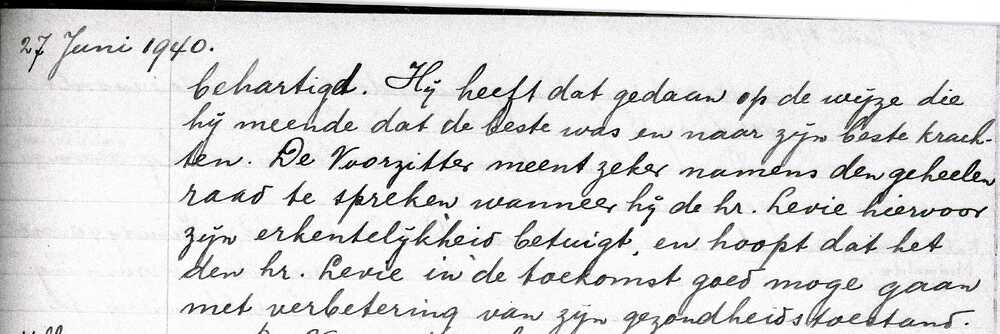 27 Juni 1940.
behartigd. Hij heeft dat gedaan op de wijze die
hij meende dat de beste was en naar zijn beste krach-
ten. De Voorzitter meent zeker namens den geheelen
raad te spreken wanneer hij de hr. Levie hiervoor
zijn erkentelijkheid betuigt, en hoopt dat het
den hr. Levie in de toekomst goed moge gaan
met verbetering van zijn gezondheidstoestand.